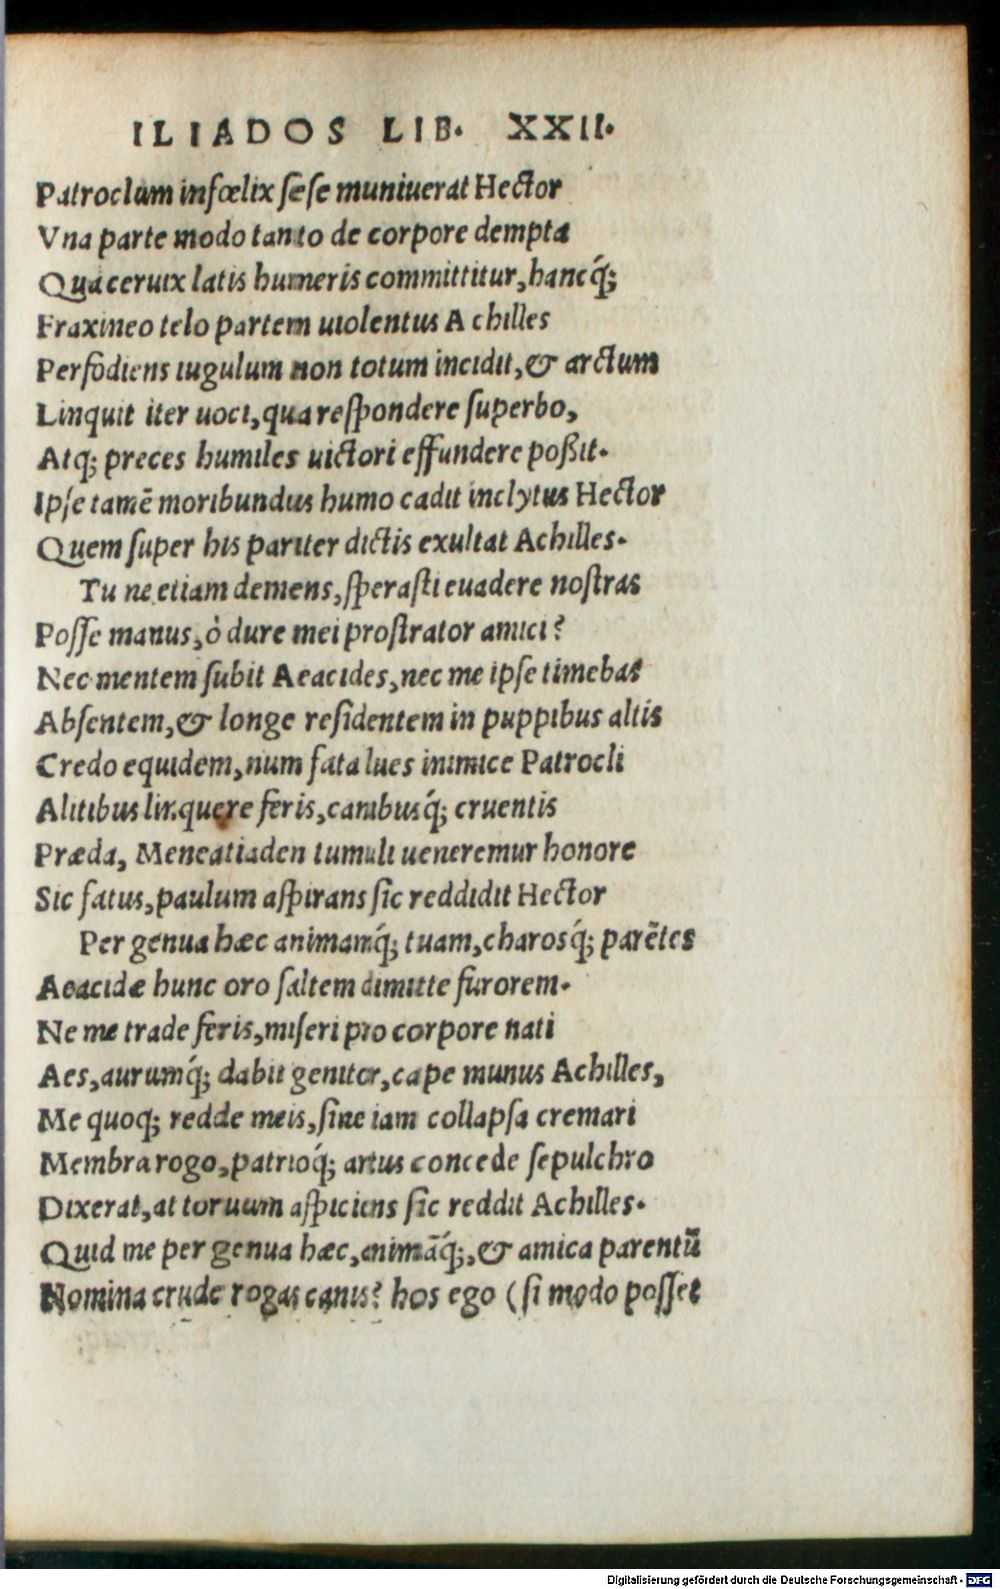 ILIADOS LIB. XXII.
Patroclum infœlix ſeſe muniuerat Hector
Vna parte modo tanto de corpore dempta
Qua ceruix latis humeris committitur, hancq́;
Fraxineo telo partem uiolentus Achilles
Perfodiens iugulum non totum incidit, & arctum
Linquit iter uoci, qua reſpondere ſuperbo,
Atq; preces humiles uictori effundere poßit.
Ipſe tamē moribundus humo cadit inclytus Hector
Quem ſuper his pariter dictis exultat Achilles.
Tu ne etiam demens, ſperaſti euadere noſtras
Poſſe manus, ò dure mei proſtrator amici?
Nec mentem ſubit Aeacides, nec me ipſe timebas
Abſentem, & longe reſidentem in puppibus altis
Credo equidem, num fata lues inimice Patrocli
Alitibus linquere feris, canibusq́; cruentis
Præda, Meneatiaden tumuli ueneremur honore
Sic fatus, paulum aſpirans ſic reddidit Hector
Per genua hæc animamq́; tuam, charosq́; parētes
Aeacidæ hunc oro ſaltem dimitte furorem.
Ne me trade feris, miſeri pro corpore nati
Aes, aurumq́; dabit genitor, cape munus Achilles,
Me quoq; redde meis, ſine iam collapſa cremari
Membra rogo, patrioq́; artus concede ſepulchro
Dixerat, at toruum aſpiciens ſic reddit Achilles.
Quid me per genua hæc, animāq́;, & amica parentū
Nomina crude rogas canis? hos ego (ſi modo poſſet
Digitalisierung gefördert durch die Deutsche Forschungsgemeinschaft - DFG